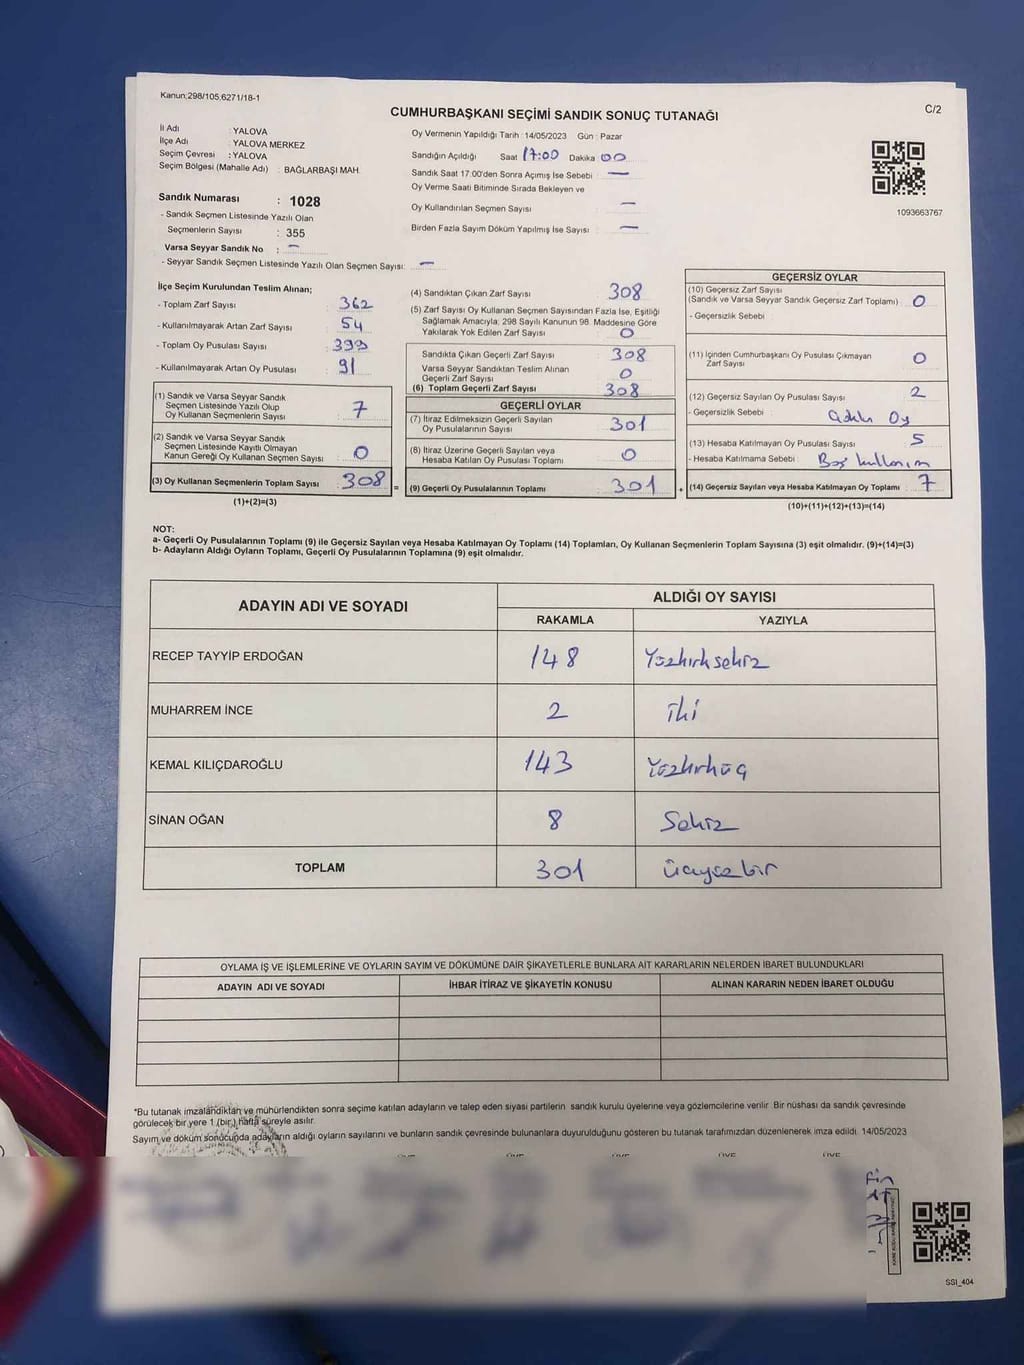 Kanun;298/105,6271/18-1
C/2
CUMHURBAŞKANI SEÇİMİ SANDIK SONUÇ TUTANAĞI
İl Adı : YALOVA
İlçe Adı : YALOVA MERKEZ
Seçim Çevresi : YALOVA
Seçim Bölgesi (Mahalle Adı) : BAĞLARBAŞI MAH.
Sandık Numarası : 1028
- Sandık Seçmen Listesinde Yazılı Olan
Seçmenlerin Sayısı : 355
Varsa Seyyar Sandık No : —
- Seyyar Sandık Seçmen Listesinde Yazılı Olan Seçmen Sayısı: —
Oy Vermenin Yapıldığı Tarih : 14/05/2023 Gün : Pazar
Sandığın Açıldığı Saat 17:00 Dakika 00
Sandık Saat 17:00'den Sonra Açımış İse Sebebi : —
Oy Verme Saati Bitiminde Sırada Bekleyen ve
Oy Kullandırılan Seçmen Sayısı : —
Birden Fazla Sayım Döküm Yapılmış İse Sayısı : —
1093663767
İlçe Seçim Kurulundan Teslim Alınan;
- Toplam Zarf Sayısı : 362
- Kullanılmayarak Artan Zarf Sayısı : 54
- Toplam Oy Pusulası Sayısı : 399
- Kullanılmayarak Artan Oy Pusulası : 91
(1) Sandık ve Varsa Seyyar Sandık
Seçmen Listesinde Yazılı Olup
Oy Kullanan Seçmenlerin Sayısı : 7
(2) Sandık ve Varsa Seyyar Sandık
Seçmen Listesinde Kayıtlı Olmayan
Kanun Gereği Oy Kullanan Seçmen Sayısı : 0
(3) Oy Kullanan Seçmenlerin Toplam Sayısı : 308
(1)+(2)=(3)
(4) Sandıktan Çıkan Zarf Sayısı : 308
(5) Zarf Sayısı Oy Kullanan Seçmen Sayısından Fazla İse, Eşitliği
Sağlamak Amacıyla; 298 Sayılı Kanunun 98. Maddesine Göre
Yakılarak Yok Edilen Zarf Sayısı : 0
Sandıkta Çıkan Geçerli Zarf Sayısı : 308
Varsa Seyyar Sandıktan Teslim Alınan
Geçerli Zarf Sayısı : 0
(6) Toplam Geçerli Zarf Sayısı : 308
GEÇERLİ OYLAR
(7) İtiraz Edilmeksizin Geçerli Sayılan
Oy Pusulalarının Sayısı : 301
(8) İtiraz Üzerine Geçerli Sayılan veya
Hesaba Katılan Oy Pusulası Toplamı : 0
= (9) Geçerli Oy Pusulalarının Toplamı : 301 +
GEÇERSİZ OYLAR
(10) Geçersiz Zarf Sayısı
(Sandık ve Varsa Seyyar Sandık Geçersiz Zarf Toplamı) : 0
- Geçersizlik Sebebi :
(11) İçinden Cumhurbaşkanı Oy Pusulası Çıkmayan
Zarf Sayısı : 0
(12) Geçersiz Sayılan Oy Pusulası Sayısı : 2
- Geçersizlik Sebebi : Oy
(13) Hesaba Katılmayan Oy Pusulası Sayısı : 5
- Hesaba Katılmama Sebebi : Boş kullanım
(14) Geçersiz Sayılan veya Hesaba Katılmayan Oy Toplamı : 7
(10)+(11)+(12)+(13)=(14)
NOT:
a- Geçerli Oy Pusulalarının Toplamı (9) ile Geçersiz Sayılan veya Hesaba Katılmayan Oy Toplamı (14) Toplamları, Oy Kullanan Seçmenlerin Toplam Sayısına (3) eşit olmalıdır. (9)+(14)=(3)
b- Adayların Aldığı Oyların Toplamı, Geçerli Oy Pusulalarının Toplamına (9) eşit olmalıdır.
ADAYIN ADI VE SOYADI ALDIĞI OY SAYISI
RAKAMLA YAZIYLA
RECEP TAYYİP ERDOĞAN 148 Yüzkırksekiz
MUHARREM İNCE 2 iki
KEMAL KILIÇDAROĞLU 143 Yüzkırküç
SİNAN OĞAN 8 Sekiz
TOPLAM 301 üçyüzbir
OYLAMA İŞ VE İŞLEMLERİNE VE OYLARIN SAYIM VE DÖKÜMÜNE DAİR ŞİKAYETLERLE BUNLARA AİT KARARLARIN NELERDEN İBARET BULUNDUKLARI
ADAYIN ADI VE SOYADI İHBAR İTİRAZ VE ŞİKAYETİN KONUSU ALINAN KARARIN NEDEN İBARET OLDUĞU
*Bu tutanak imzalandıktan ve mühürlendikten sonra seçime katılan adayların ve talep eden siyasi partilerin sandık kurulu üyelerine veya gözlemcilerine verilir. Bir nüshası da sandık çevresinde
görülecek bir yere 1 (bir) hafta süreyle asılır.
Sayım ve döküm sonucunda adayların aldığı oyların sayılarını ve bunların sandık çevresinde bulunanlara duyurulduğunu gösteren bu tutanak tarafımızdan düzenlenerek imza edildi. 14/05/2023
SSI_404